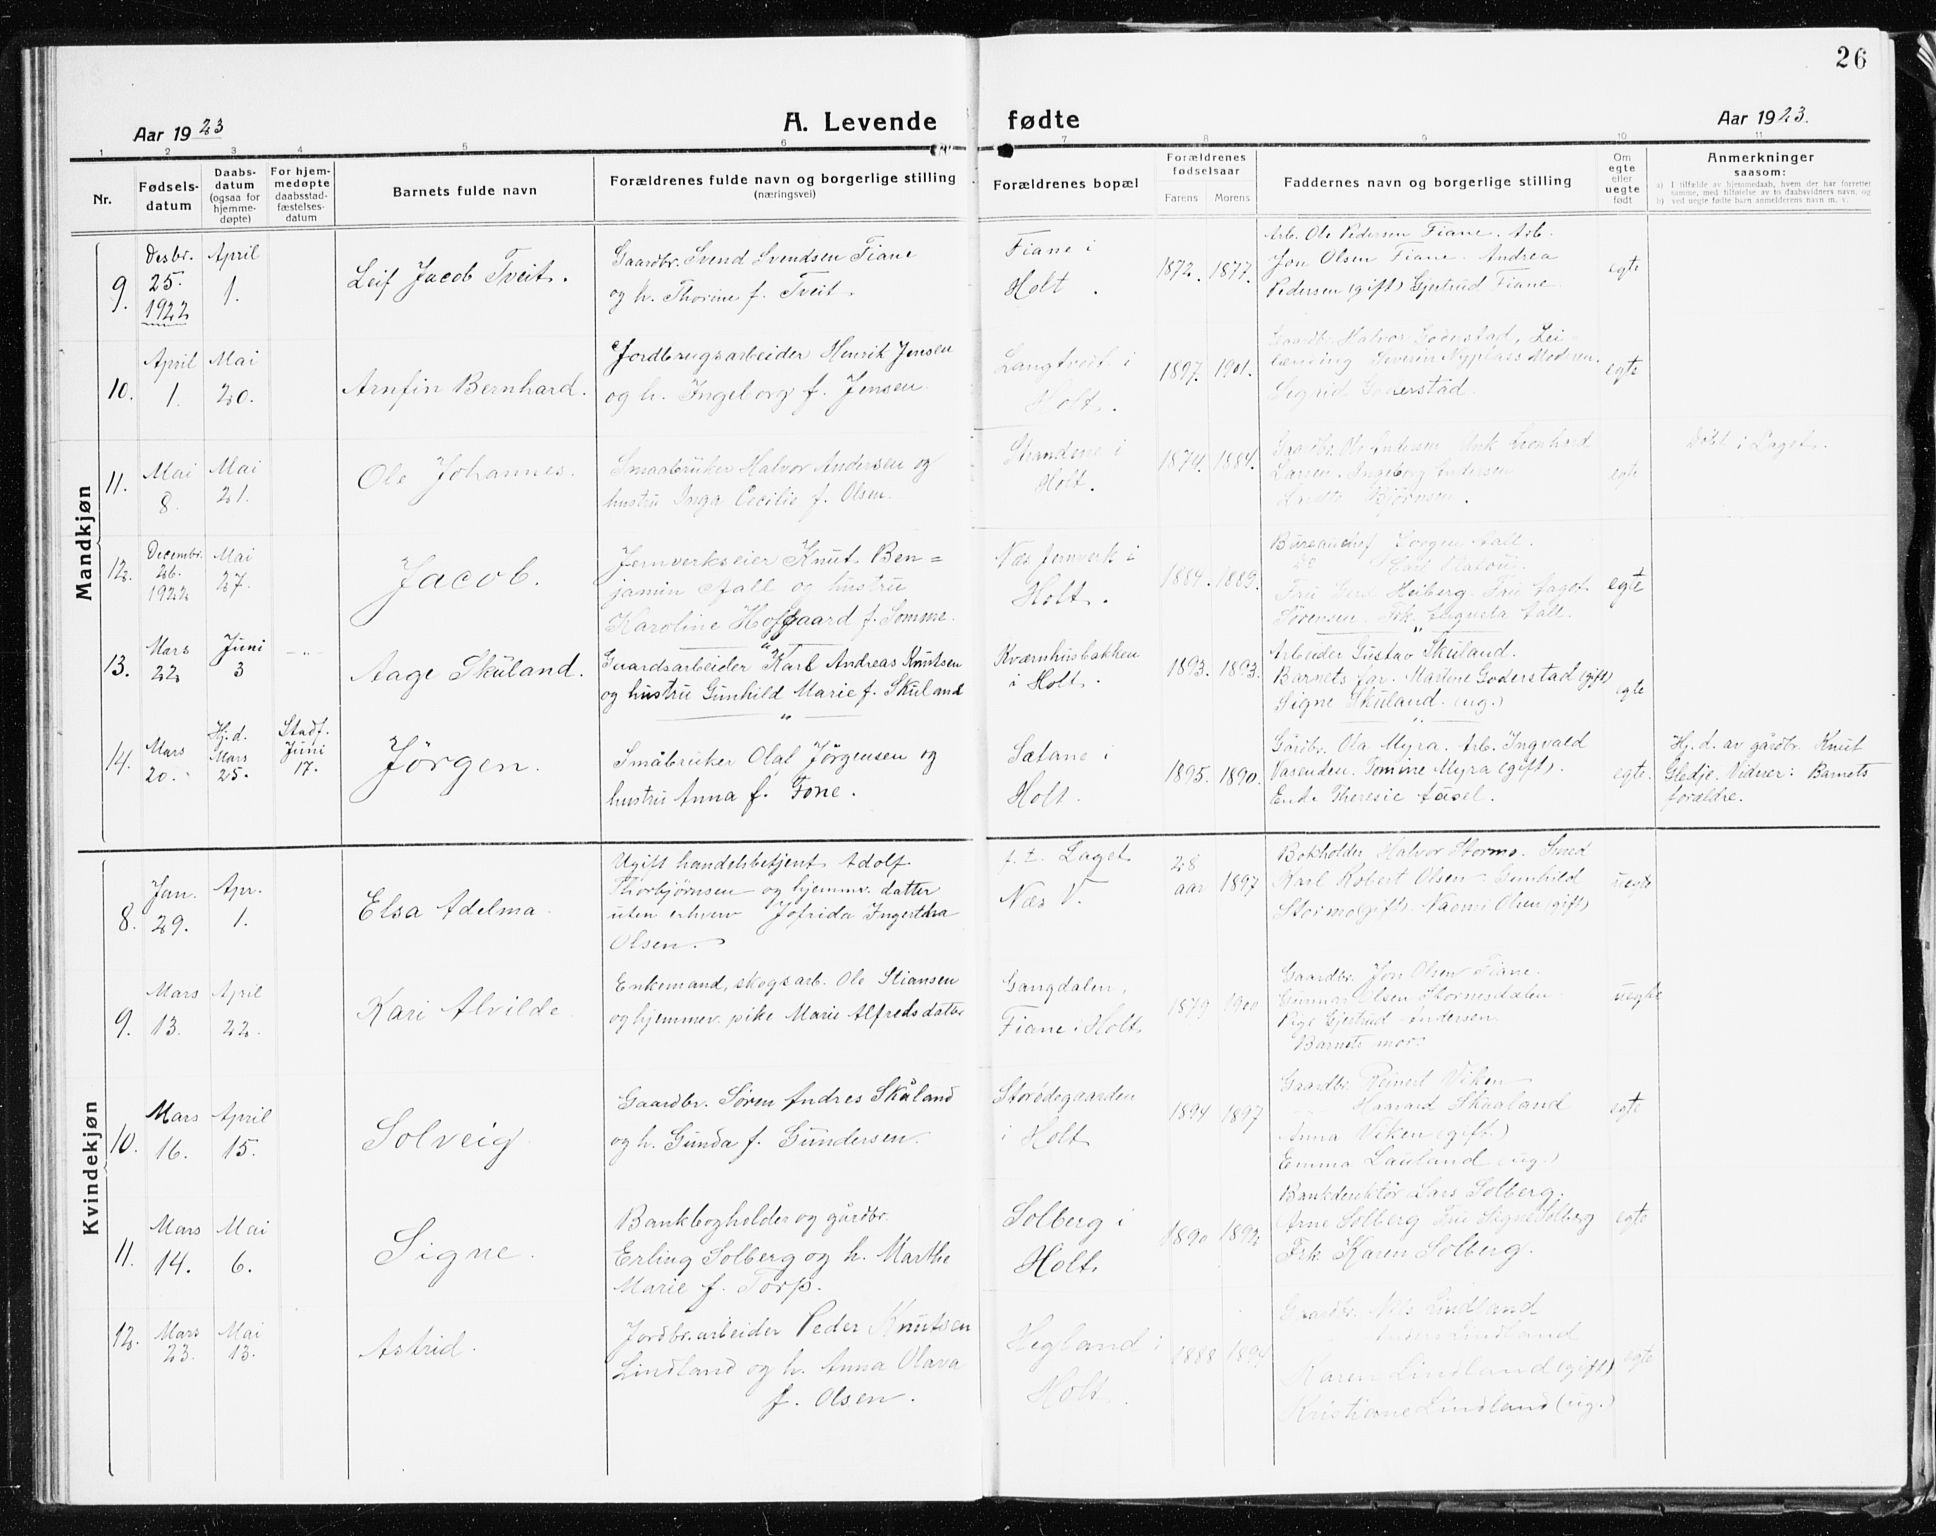 26
Aar 1923
A. Levende fødte
Aar 1923.
1 2 3 4 5 6 7 8 9 10 11
Nr.
Fødsels-
datum
Daabs-
datum
(ogsaa for
hjemme-
døpte)
For hjem-
medøpte
daabsstad-
fæstelses-
datum
Barnets fulde navn
Forældrenes fulde navn og borgerlige stilling
(næringsvei)
Forældrenes bopæl
Forældrenes
fødselsaar
Farens Morens
Faddernes navn og borgerlige stilling
Om
egte
eller
uegte
født
Anmerkninger
saasom:
a) I tilfælde av hjemmedaab, hvem der har forrettet
samme, med tilføielse av to daabsvidners navn, og
b) ved uegte fødte barn anmelderens navn m. v.
Mandkjøn
9.
Desbr.
25.
1922
April
1.
Leif Jacob Tveit.
Gaardbr. Svend Svendsen Fiane
og h. Thorine f. Tveit.
Fiane i
Holt.
1872. 1877.
Arb. Ole Pedersen Fiane. Arb.
Jon Olsen Fiane. Andrea
Pedersen (gift) Gjertrud Fiane.
egte
10.
April
1.
Mai
20.
Arnfin Bernhard.
Jordbrugsarbeider Henrik Jensen
og h. Ingeborg f. Jensen.
Langtvedt i
Holt.
1897. 1901.
Gaardbr. Halvor Goderstad, Lei-
lænding Severin Nyplads Modren.
Sigrid Goderstad.
egte
11.
Mai
8.
Mai
21.
Ole Johannes.
Smaabruker Halvor Andersen og
hustru Inga Cecilie f. Olsen.
Strandene i
Holt.
1874. 1884.
Gaardbr. Ole Andersen Leonhard
Larsen. Ingeborg Andersen
Bjørnsen.
egte
Døbt i Laget.
12.
Decembr.
26.
1922
Mai
27.
Jacob.
Jernverkseier Knut Ben=
jamin Aall og hustru
Karoline Hofgaard f. Somme.
Næs Jernverk i
Holt.
1884. 1889.
Bureauchef Jørgen Aall.
Do Carl Platou.
Fru Gerd Heiberg. Fru Lagot
Sørensen. Frk. Augusta Aall.
egte
13.
Mars
22
Juni
3
-„-
Aage Skuland.
Guardsarbeider Karl Andreas Knutsen
og hustru Gunhild Marie f. Skuland
Kværnhusbakken
i Holt.
1893. 1893.
Arbeider Gustav Skuland.
Barnets far. Martine Goderstad (gift)
Signe Skuland. (ug.)
egte
14.
Mars
20.
Hj.d.
Mars
25.
Stadf.
Juni
17.
Jørgen.
Småbruker Olaf Jørgensen og
hustru Anna f. Fone.
Sætane i
Holt.
1895. 1890.
Gårdbr. Ola Myra. Arb. Ingvald
Vasenden. Tomine Myra (gift).
Enke Theresie Ausel.
egte.
Hj. d. av gårdbr. Knut
Gledje. Vidner: Barnets
forældre.
Kvindekjøn
8.
Jan.
29.
Apr.
1.
Elsa Adelma.
Ugift handelsbetjent Adolf
Thorbjørnsen og hjemmv. datter
uten erhverv Jofrida Ingertha
Olsen.
f. t. Laget
Næs V.
28
aar 1897
Bokholder Halvor Stormo. Smed
Karl Robert Olsen. Gunhild
Stormo (gift). Naomi Olsen (gift)
uegte
9.
Mars
13.
April
22.
Kari Alvilde.
Enkemand, skogsarb. Ole Stiansen
og hjemmev. pike Marie Alfredsdatter
Gangdalen,
Fiane i Holt.
1879 1900
Gaardbr. Jon Olsen Fiane.
Gunnar Olsen Stornesdalen.
Pige Gjertrud Andersen.
Barnets mor.
uegte
10.
Mars
16.
April
15.
Solveig.
Gaardbr. Søren Andres Skåland
og h. Gunda f. Gundersen.
Storødegaarden
i Holt
1894 1897
Gaardbr. Reinert Viken
Haavard Skaaland
Anna Viken (gift.)
Emma Lauland (ug.)
egte
11.
Mars
14.
Mai
6.
Signe.
Bankbogholder og gårdbr.
Erling Solberg og h. Marthe
Marie f. Torp.
Solberg i
Holt
1890 1892
Bankdirektør Lars Solberg.
Arne Solberg Fru Signe Solberg
Frk. Karen Solberg.
egte
12.
Mars
23.
Mai
13.
Astrid.
Jordbr.arbeider Peder Knutsen
Lindland og h. Anna Olava
f. Olsen.
Hegland i
Holt.
1888 1894
Gaardbr. Nils Lindland
Anders Lindland
Karen Lindland (gift)
Kristiane Lindland (ug.)
egte